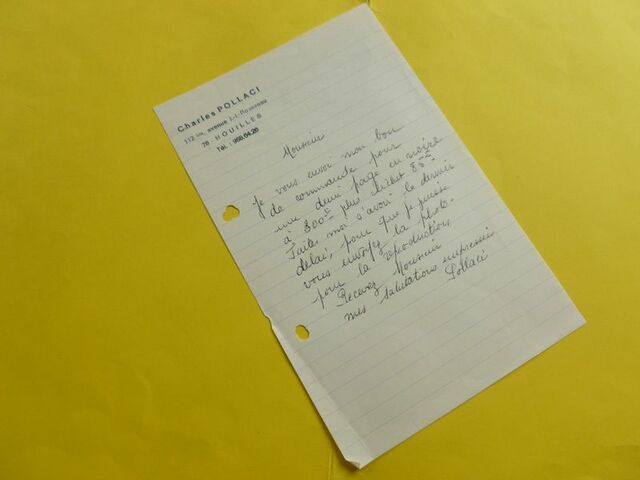 Charles POLLACI
112 bis, avenue J.-J.-Rousseau
78 - HOUILLES
Tél. : 968.64.26
Monsieur
Je vous envoi mon bon
de commande pour
une demi page en
à 800 plus cliché 85
Faites moi s'avoir le dernier
délai, pour que je puisse
vous envoyez la photo-
pour la reproduction
Recevez Monsieur
mes salutations empressés
Pollaci